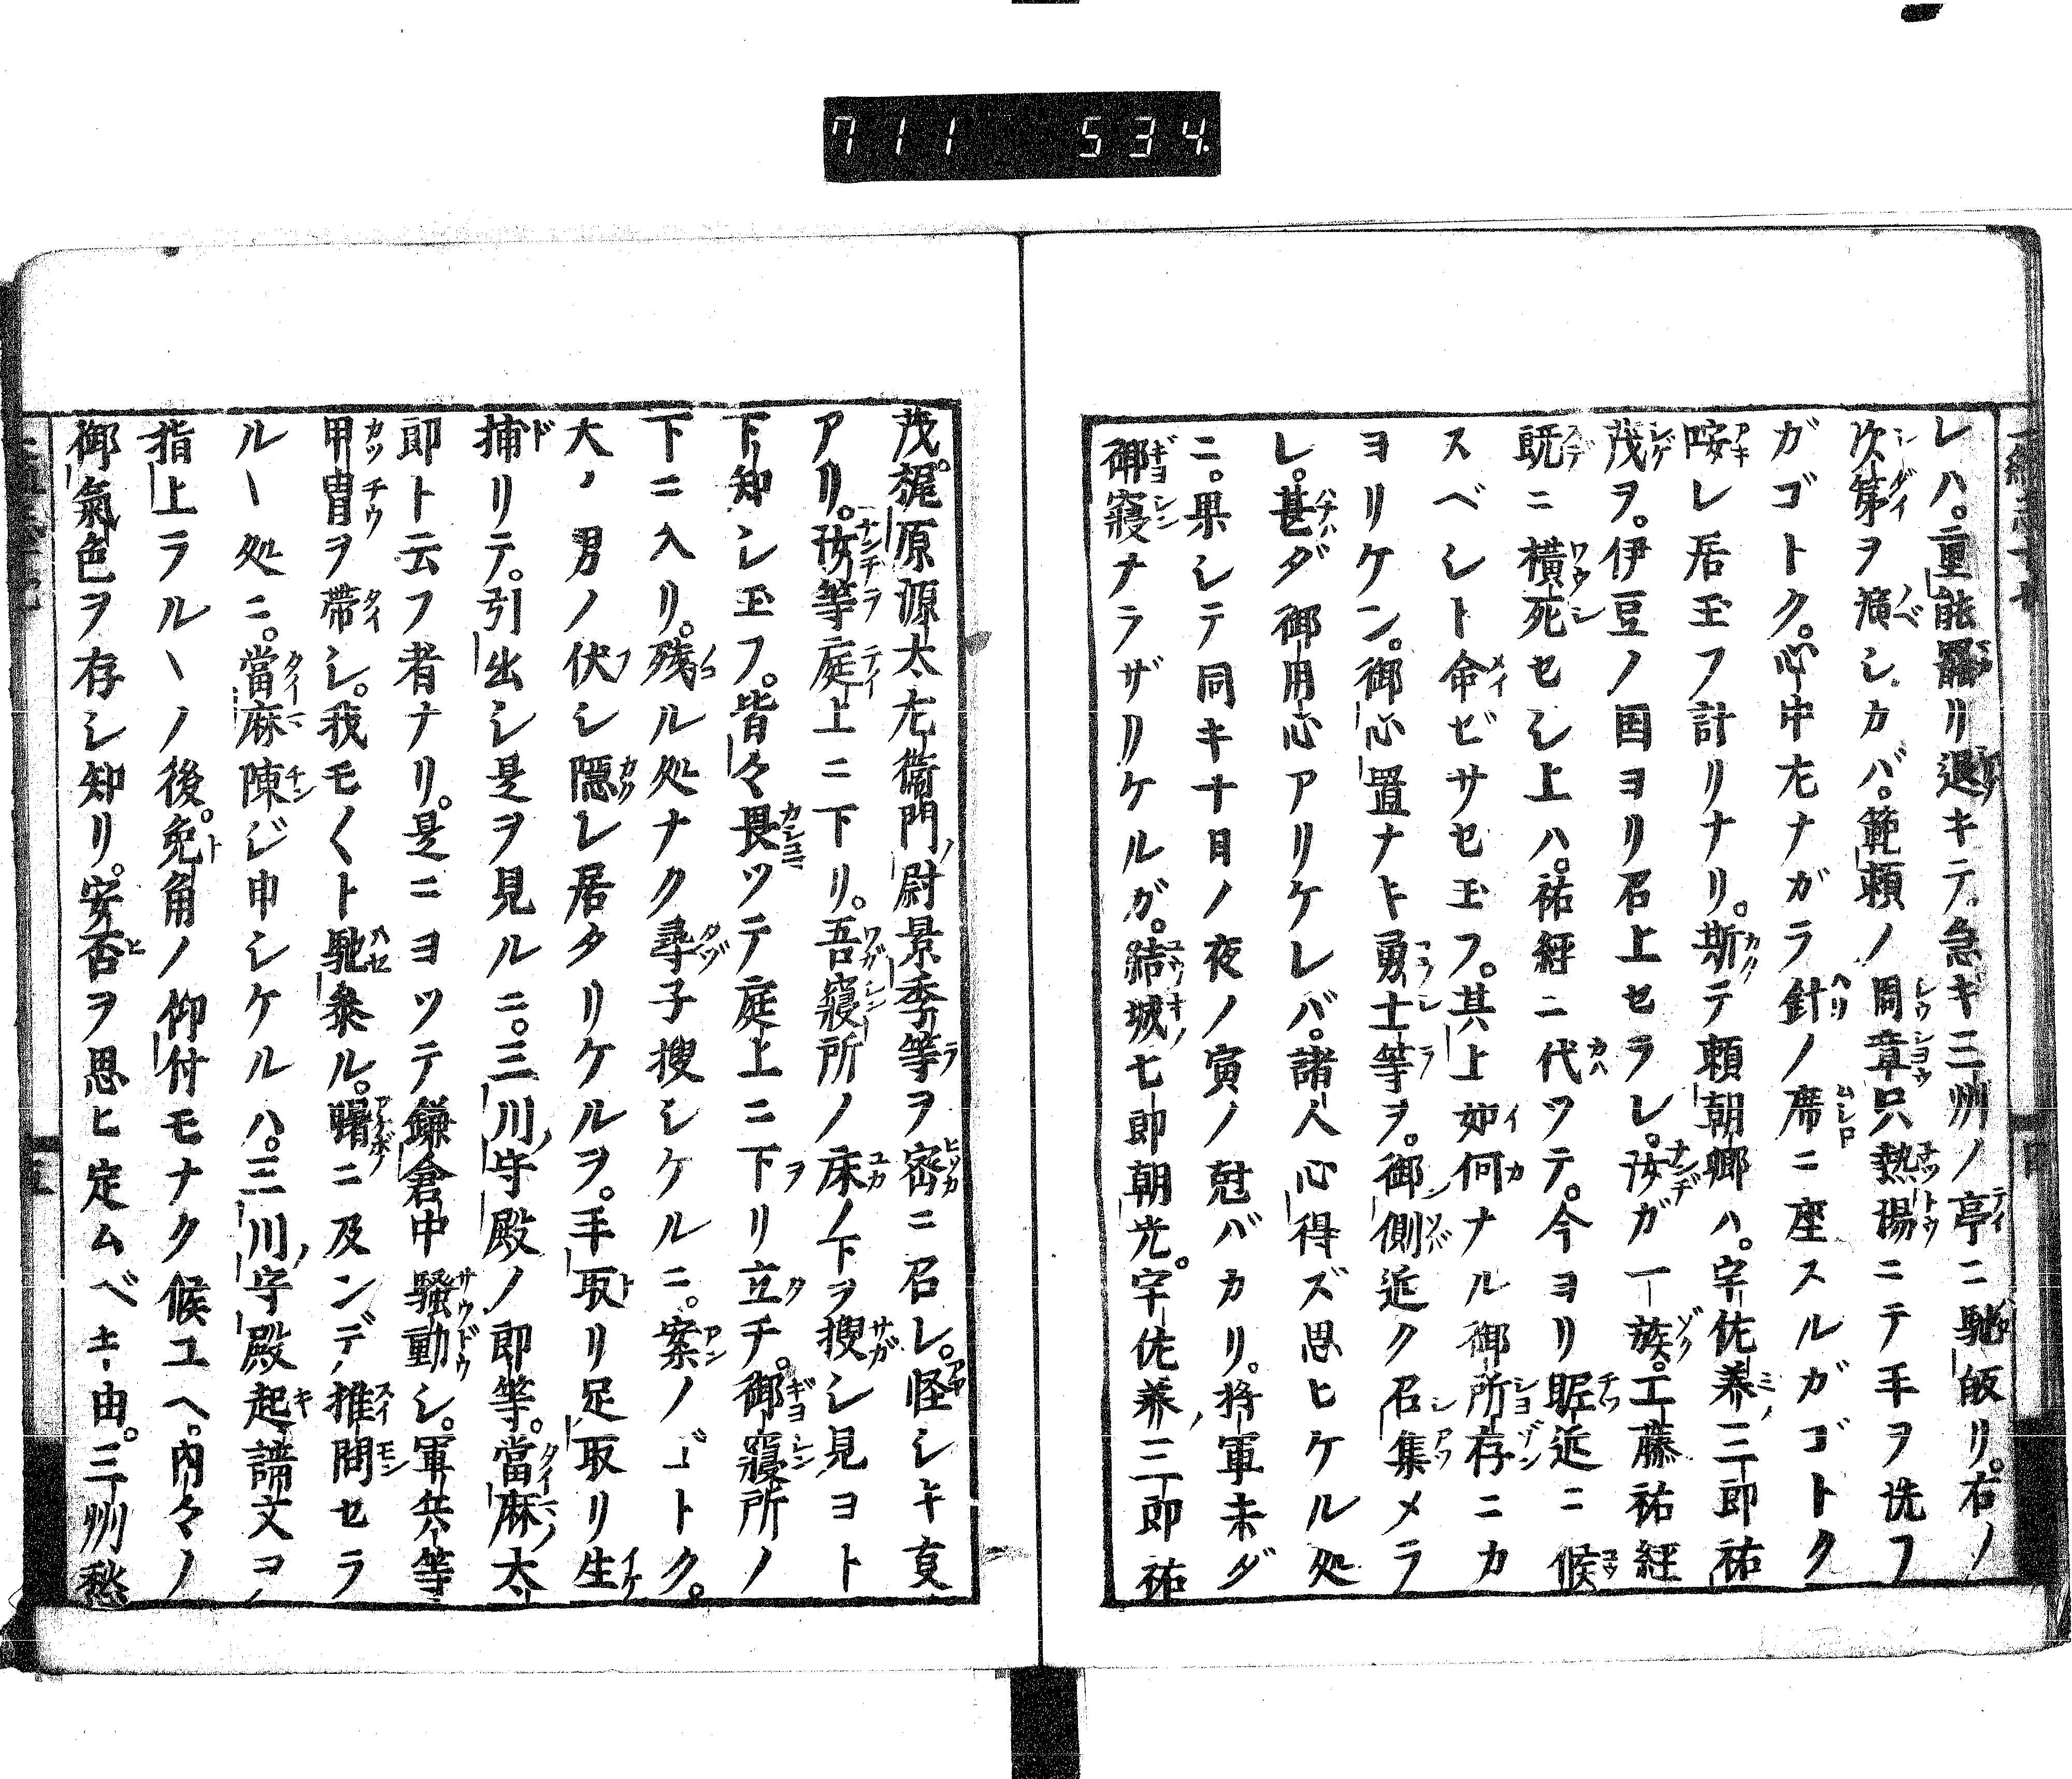 711 534
レハ。重能罷リ退キテ。急ギ三州ノ亭ニ馳皈リ。右ノ
次第ヲ演シカバ。範頼ノ周章只熱湯ニテ手ヲ洗フ
ガゴトク。心中尢ナガラ針ノ席ニ座スルガゴトク
レ居玉フ計リナリ。斯テ頼朝卿ハ。宇佐美三郎祐
茂ヲ。伊豆ノ国ヨリ召上セラレ。汝ガ一族。工藤祐經
既ニ横死セシ上ハ。祐經ニ代ツテ。今ヨリ昵近ニ候
スベシト命ゼサセ玉フ。其上如何ナル御所存ニカ
ヨリケン。御心置ナキ勇士等ヲ。御側近ク召集メラ
レ。甚ダ御用心アリケレバ。諸人心得ズ思ヒケル処
ニ。果シテ同キ十日ノ夜ノ寅ノ尅バカリ。将軍未ダ
御寢ナラザリケルガ。結城七郎朝光。宇佐美三郎祐
茂。梶原源太左衛門尉景季等ヲ密ニ召レ。怪シキ叓
アリ。汝等庭上ニ下リ。吾寢所ノ床ノ下ヲ搜シ見ヨト
下知シ玉フ。皆々畏ツテ庭上ニ下リ立チ。御寢所ノ
下ニ入リ。残ル処ナク尋子搜シケルニ。案ノゴトク。
大ノ男ノ伏シ隠レ居タリケルヲ。手取リ足取リ生
捕リテ。引出シ是ヲ見ルニ。三川守殿ノ郎等。當麻太
郎ト云フ者ナリ。是ニヨツテ鎌倉中騒動シ。軍兵等
甲冑ヲ帯シ。我モ〱ト馳叅ル。曙ニ及ンデ推問セラ
ルヽ処ニ。當麻陳ジ申シケルハ。三川守殿起請文ヲ
指上ラルヽノ後。兔角ノ仰付モナク候ユヘ。内々ノ
御氣色ヲ存シ知リ。安否ヲ思ヒ定ムベキ由。三州愁